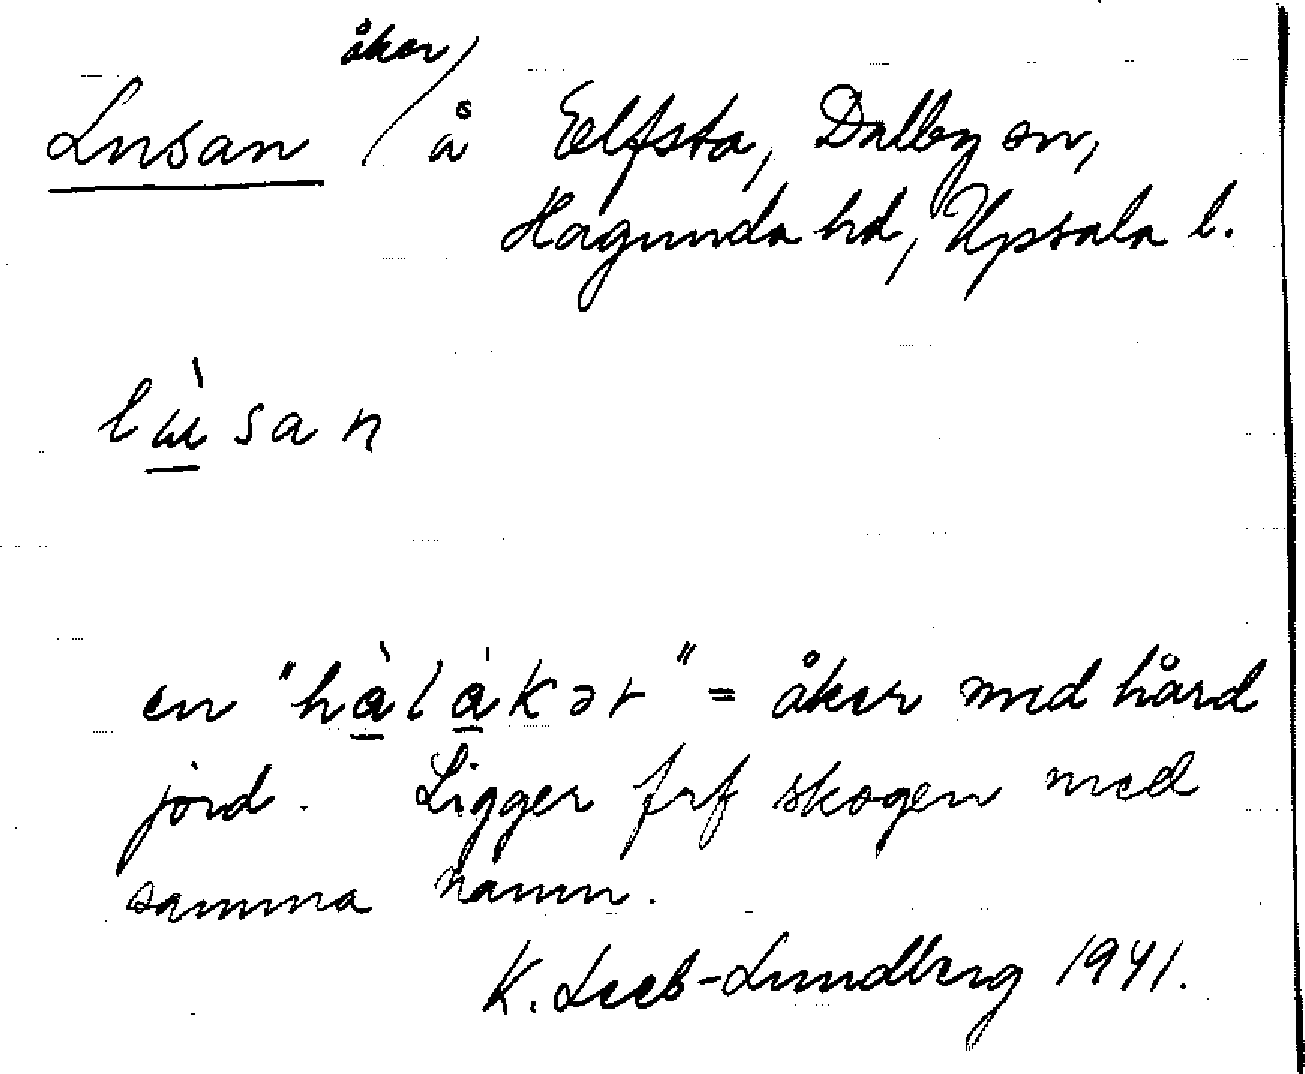 åker
Lusan / å Elfsta, Dalby sn,
Hagunda hd, Upsala l.
lɯ̀san
en "hàlákər" = åker med hård
jord. Ligger frf skogen med
samma namn.
K. Leeb-Lundberg 1941.